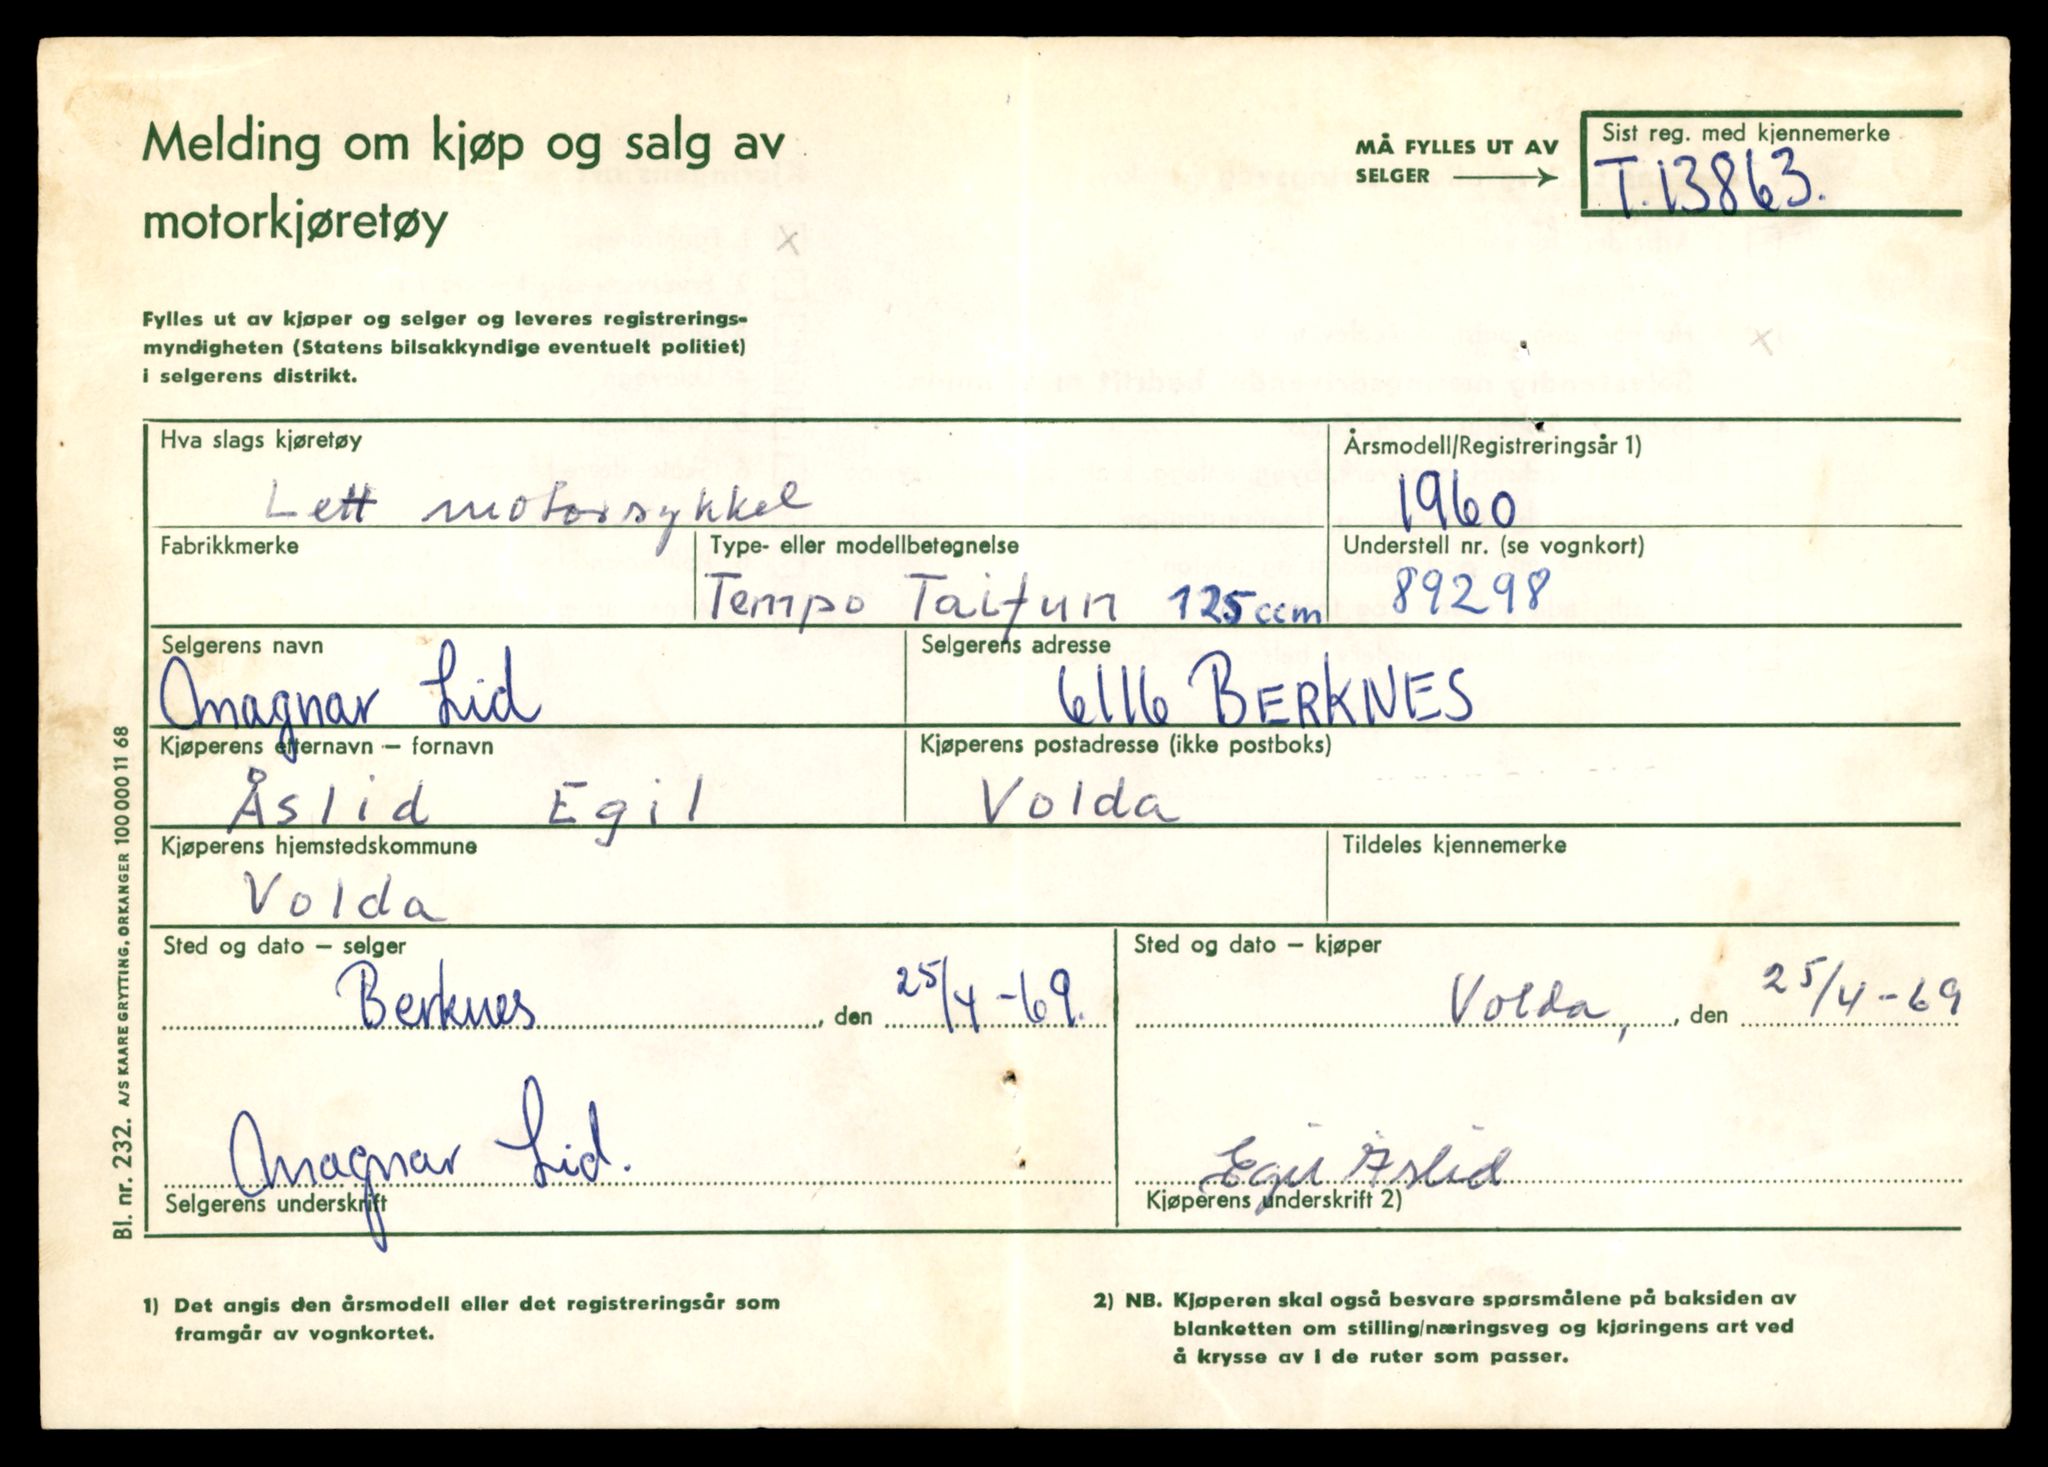 Melding om kjøp og salg av
motorkjøretøy
MÅ FYLLES UT AV
SELGER
Sist reg. med kjennemerke
T.13863.
Fylles ut av kjøper og selger og leveres registrerings-
myndigheten (Statens bilsakkyndige eventuelt politiet)
i selgerens distrikt.
Hva slags kjøretøy
Lett motorsykkel
Årsmodell/Registreringsår 1)
1960
Fabrikkmerke
Type- eller modellbetegnelse
Tempo Taifun 125ccm
Understell nr. (se vognkort)
89298
Selgerens navn
Magnar Lid
Selgerens adresse
6116 BERKNES
Kjøperens etternavn – fornavn
Åslid Egil
Kjøperens postadresse (ikke postboks)
Volda
Kjøperens hjemstedskommune
Volda
Tildeles kjennemerke
Sted og dato – selger
Berknes, den 25/4-69.
Sted og dato – kjøper
Volda, , den 25/4-69
Magnar Lid.
Selgerens underskrift
Egil Åslid
Kjøperens underskrift 2)
1) Det angis den årsmodell eller det registreringsår som
framgår av vognkortet.
2) NB. Kjøperen skal også besvare spørsmålene på baksiden av
blanketten om stilling/næringsveg og kjøringens art ved
å krysse av i de ruter som passer.
Bl. nr. 232. A/S KAARE GRYTTING, ORKANGER 100 000 11 68